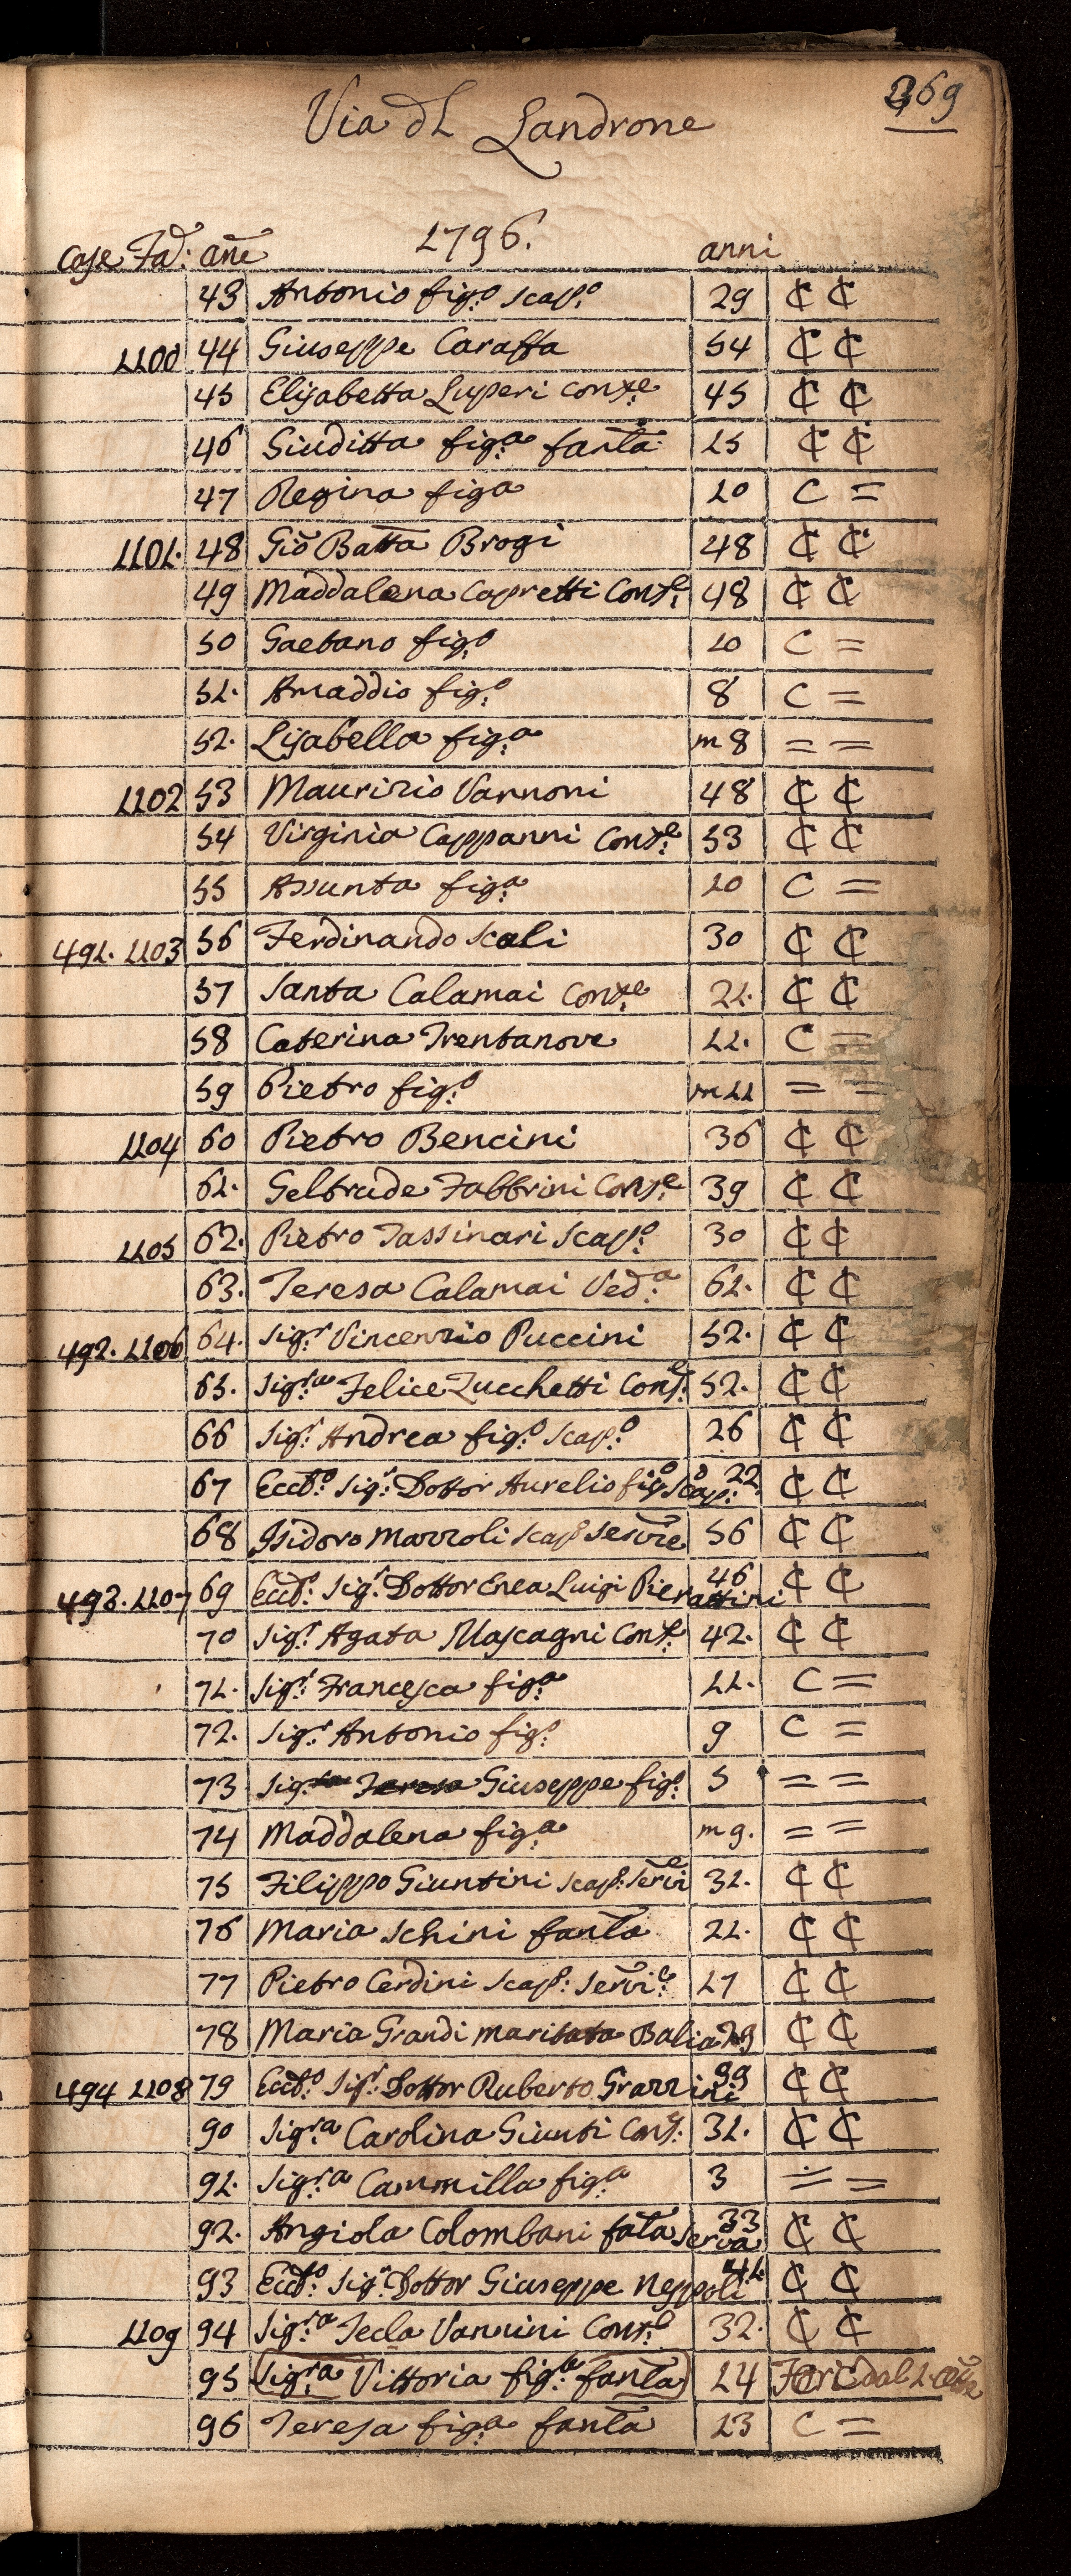 369
Via dl Landrone
1796.
Case Fad: añe anni
43 Antonio fig:o scap:o 29 C C
1100 44 Giuseppe Caraffa 54 C C
45 Elisabetta Luperi Conse 45 C C
46 Giuditta fig:a fanta 15 C C
47 Regina figa 10 C =
1101. 48 Gio Batta Brogi 48 C C
49 Maddalena Capretti Cons:e 48 C C
50 Gaetano fig:o 10 C =
51. Amaddio fig:o 8 C =
52. Lisabella fig:a m 8 = =
1102 53 Maurizio Vannoni 48 C C
54 Virginia Cappanni Cons:e 53 C C
55 Assunta fig:a 10 C =
491. 1103 56 Ferdinando Scali 30 C C
57 Santa Calamai Cons:e 21. C C
58 Caterina Trentanove 11. C =
59 Pietro fig:o m 11 = =
1104 60 Pietro Bencini 36 C C
61. Geltrude Fabbrini Cons:e 39 C C
1105 62. Pietro Tassinari Scap:o 30 C C
63. Teresa Calamai Ved:a 62. C C
492. 1106 64. Sig:r Vincenzio Puccini 52. C C
65. Sig:ra Felice Zucchetti Cons:e 52. C C
66 Sig:r Andrea fig:o Scap:o 26 C C
67 Eccth:o Sig:r Dottor Aurelio fig:o Scap:o 22 C C
68 Isidoro Mazzoli Scap:o Servre 56 C C
493. 1107 69 Ecct:o Sig:r Dottor Enea Luigi Pierattini 46 C C
70 Sig:r Agata Mascagni Cons:e 42. C C
71. Sig:r Francesca fig:a 11. C =
72. Sig:r Antonio fig:o 9 C =
73 Sig:ra Teresa Giuseppe fig:o 5 = =
74 Maddalena fig:a m 9. = =
75 Filippo Giuntini scap: Servi 31. C C
76 Maria Schini fanta 21. C C
77 Pietro Cerdini Scap:o Servi:e 17 C C
78 Maria Grandi maritata Balia 29 C C
494 1108 79 Ecct:o Sig:r Dottor Ruberto Grazzini 39 C C
90 Sig:ra Carolina Giunti Cons: 31. C C
91. Sig:ra Cammilla fig:a 3 = =
92. Angiola Colombani fata Serva 33 C C
93 Ecct:o Sig:r Dottor Giuseppe Neppoli 41. C C
1109 94 Sig:ra Tecla Vannini Cons:e 32. C C
95 Sig:ra Vittoria fig:a fanta 14
96 Teresa fig:a fanta 13 C =